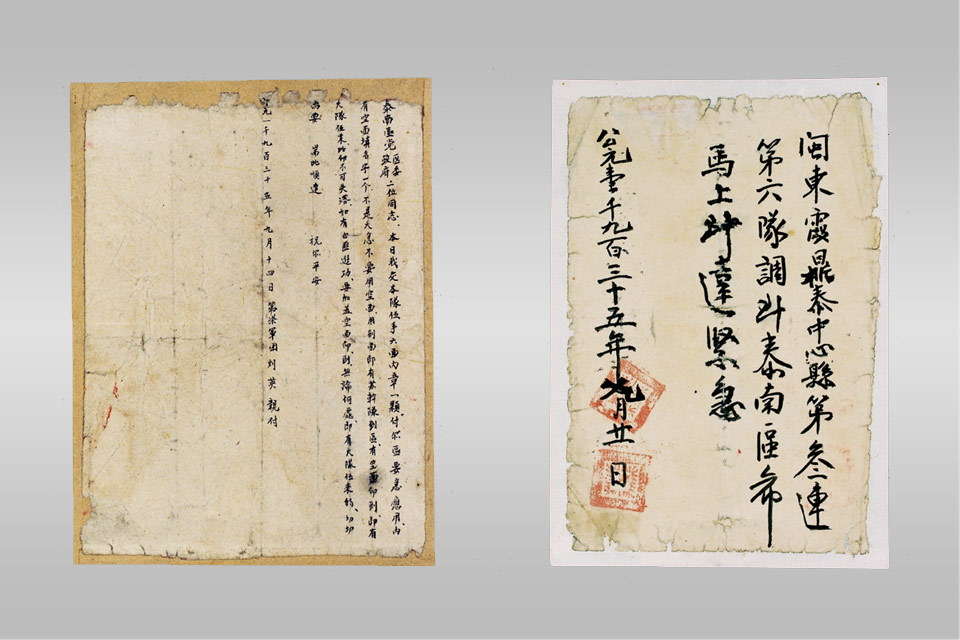 泰南區党區委政府二位同志、本日我処本隊伍手大面内章一顆付尔區要急應用、内
有空面填吉字一个不是大急不要用空面、用到面即有若幹隊到區、有空面印到即有
大隊伍来、此印不可失落、如有台匪進功、要加蓋空面印、則無論何處即有大隊伍来的、切切
為要 常此順達 祝尔平安
公元一千九百三十五年九月十四日 第柒軍団刘英親付
閩東霞鼎泰中心縣第叁連
第六隊調到泰南區布
馬上到達緊急
公元壹千九百三十五年九月廿日